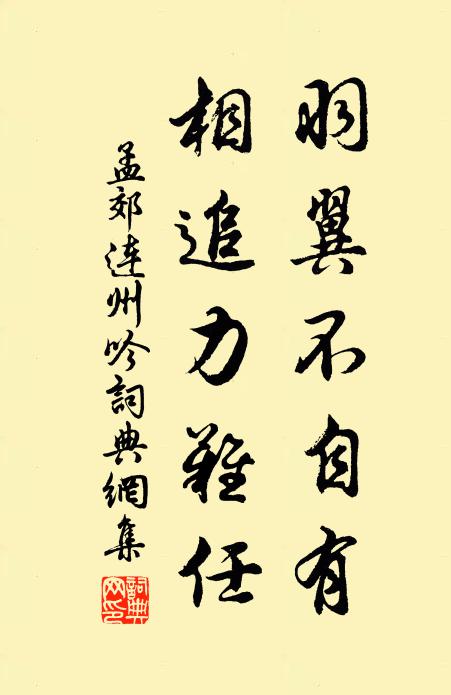 羽翼不自有
相追力難任
孟郊連州吟詞典網集
詞典網印